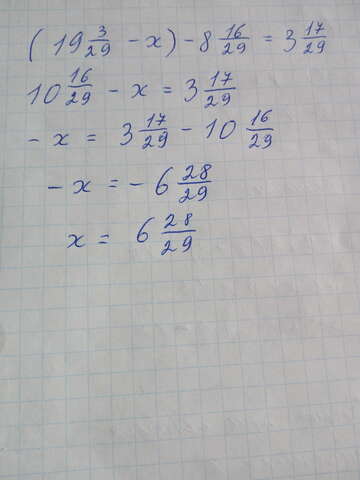 (19 3/29 - x) - 8 16/29 = 3 17/29
10 16/29 - x = 3 17/29
- x = 3 17/29 - 10 16/29
- x = - 6 28/29
x = 6 28/29